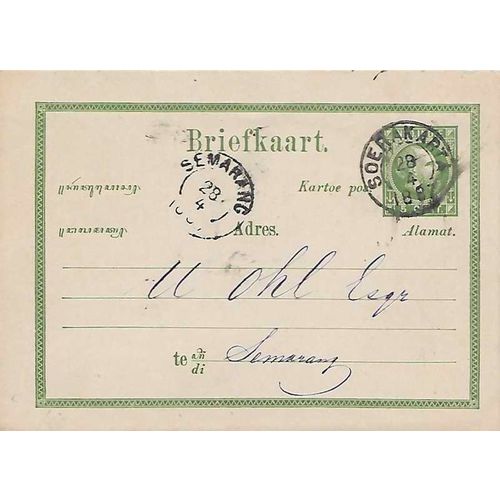 Briefkaart.
SEMARANG
28
4
SOERAKARTA
28
4
18
Kartoe pos
Adres.
Alamat.
U Ohl Esqr
te
di
Semarang